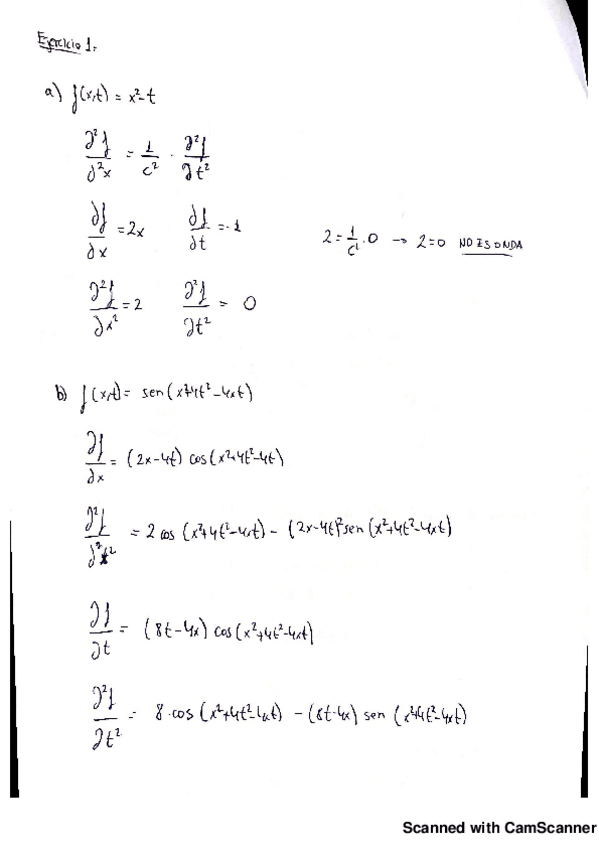 Ejercicio 1.
a) f(x,t) = x²-t
∂²f/∂²x = 1/c² · ∂²f/∂t²
∂f/∂x = 2x ∂f/∂t = -1
2 = 1/c² · 0 → 2=0 NO ES ONDA
∂²f/∂x² = 2 ∂²f/∂t² = 0
b) f(x,t) = sen(x²+4t²-4xt)
∂f/∂x = (2x-4t) cos(x²+4t²-4t)
∂²f/∂²x² = 2 cos (x²+4t²-4xt) - (2x-4t)² sen (x²+4t²-4xt)
∂f/∂t = (8t-4x) cos(x²+4t²-4xt)
∂²f/∂t² = 8·cos (x²+4t²-4xt) - (8t-4x) sen (x²+4t²-4xt)
Scanned with CamScanner